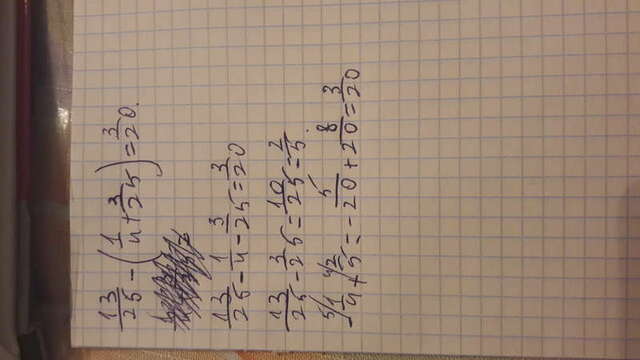 13/25 - (1/4 + 3/25) = 3/20.
13/25 - 1/4 - 3/25 = 3/20
13/25 - 3/25 = 10/25 = 2/5.
- 5/ 1/4 + 4/ 2/5 = - 5/20 + 8/20 = 3/20